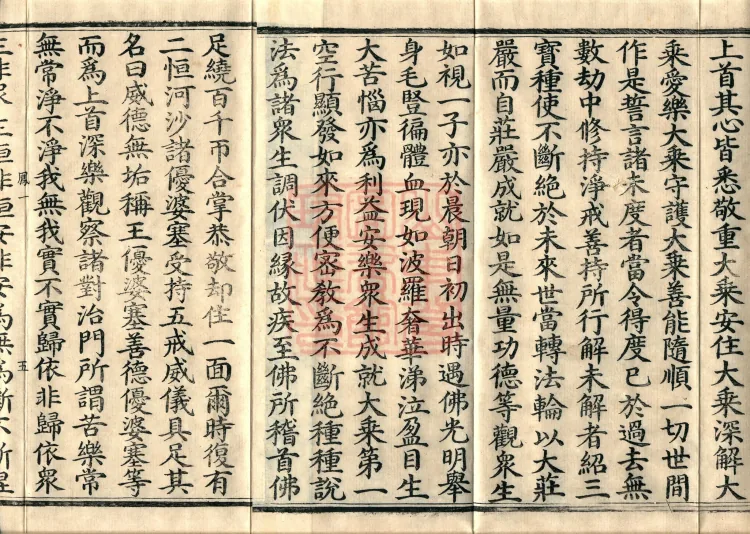 上首其心皆悉敬重大乘安住大乘深解大
乘愛樂大乘守護大乘善能隨順一切世間
作是誓言諸未度者當令得度已於過去無
數劫中修持淨戒善持所行解未解者紹三
寶種使不斷絕於未來世當轉法輪以大莊
嚴而自莊嚴成就如是無量功德等觀衆生
如視一子亦於晨朝日初出時遇佛光明舉
身毛竪徧體血現如波羅奢華涕泣盈目生
大苦惱亦爲利益安樂衆生成就大乘第一
空行顯發如來方便密教爲不斷絕種種說
法爲諸衆生調伏因緣故疾至佛所稽首佛
足繞百千帀合掌恭敬却住一面爾時復有
二恒河沙諸優婆塞受持五戒威儀具足其
名曰威德無垢稱王優婆塞善德優婆塞等
而爲上首深樂觀察諸對治門所謂苦樂常
無常淨不淨我無我實不實歸依非歸依衆
鳳一
五
生非衆生恒非恒安非安爲無爲斷不斷涅